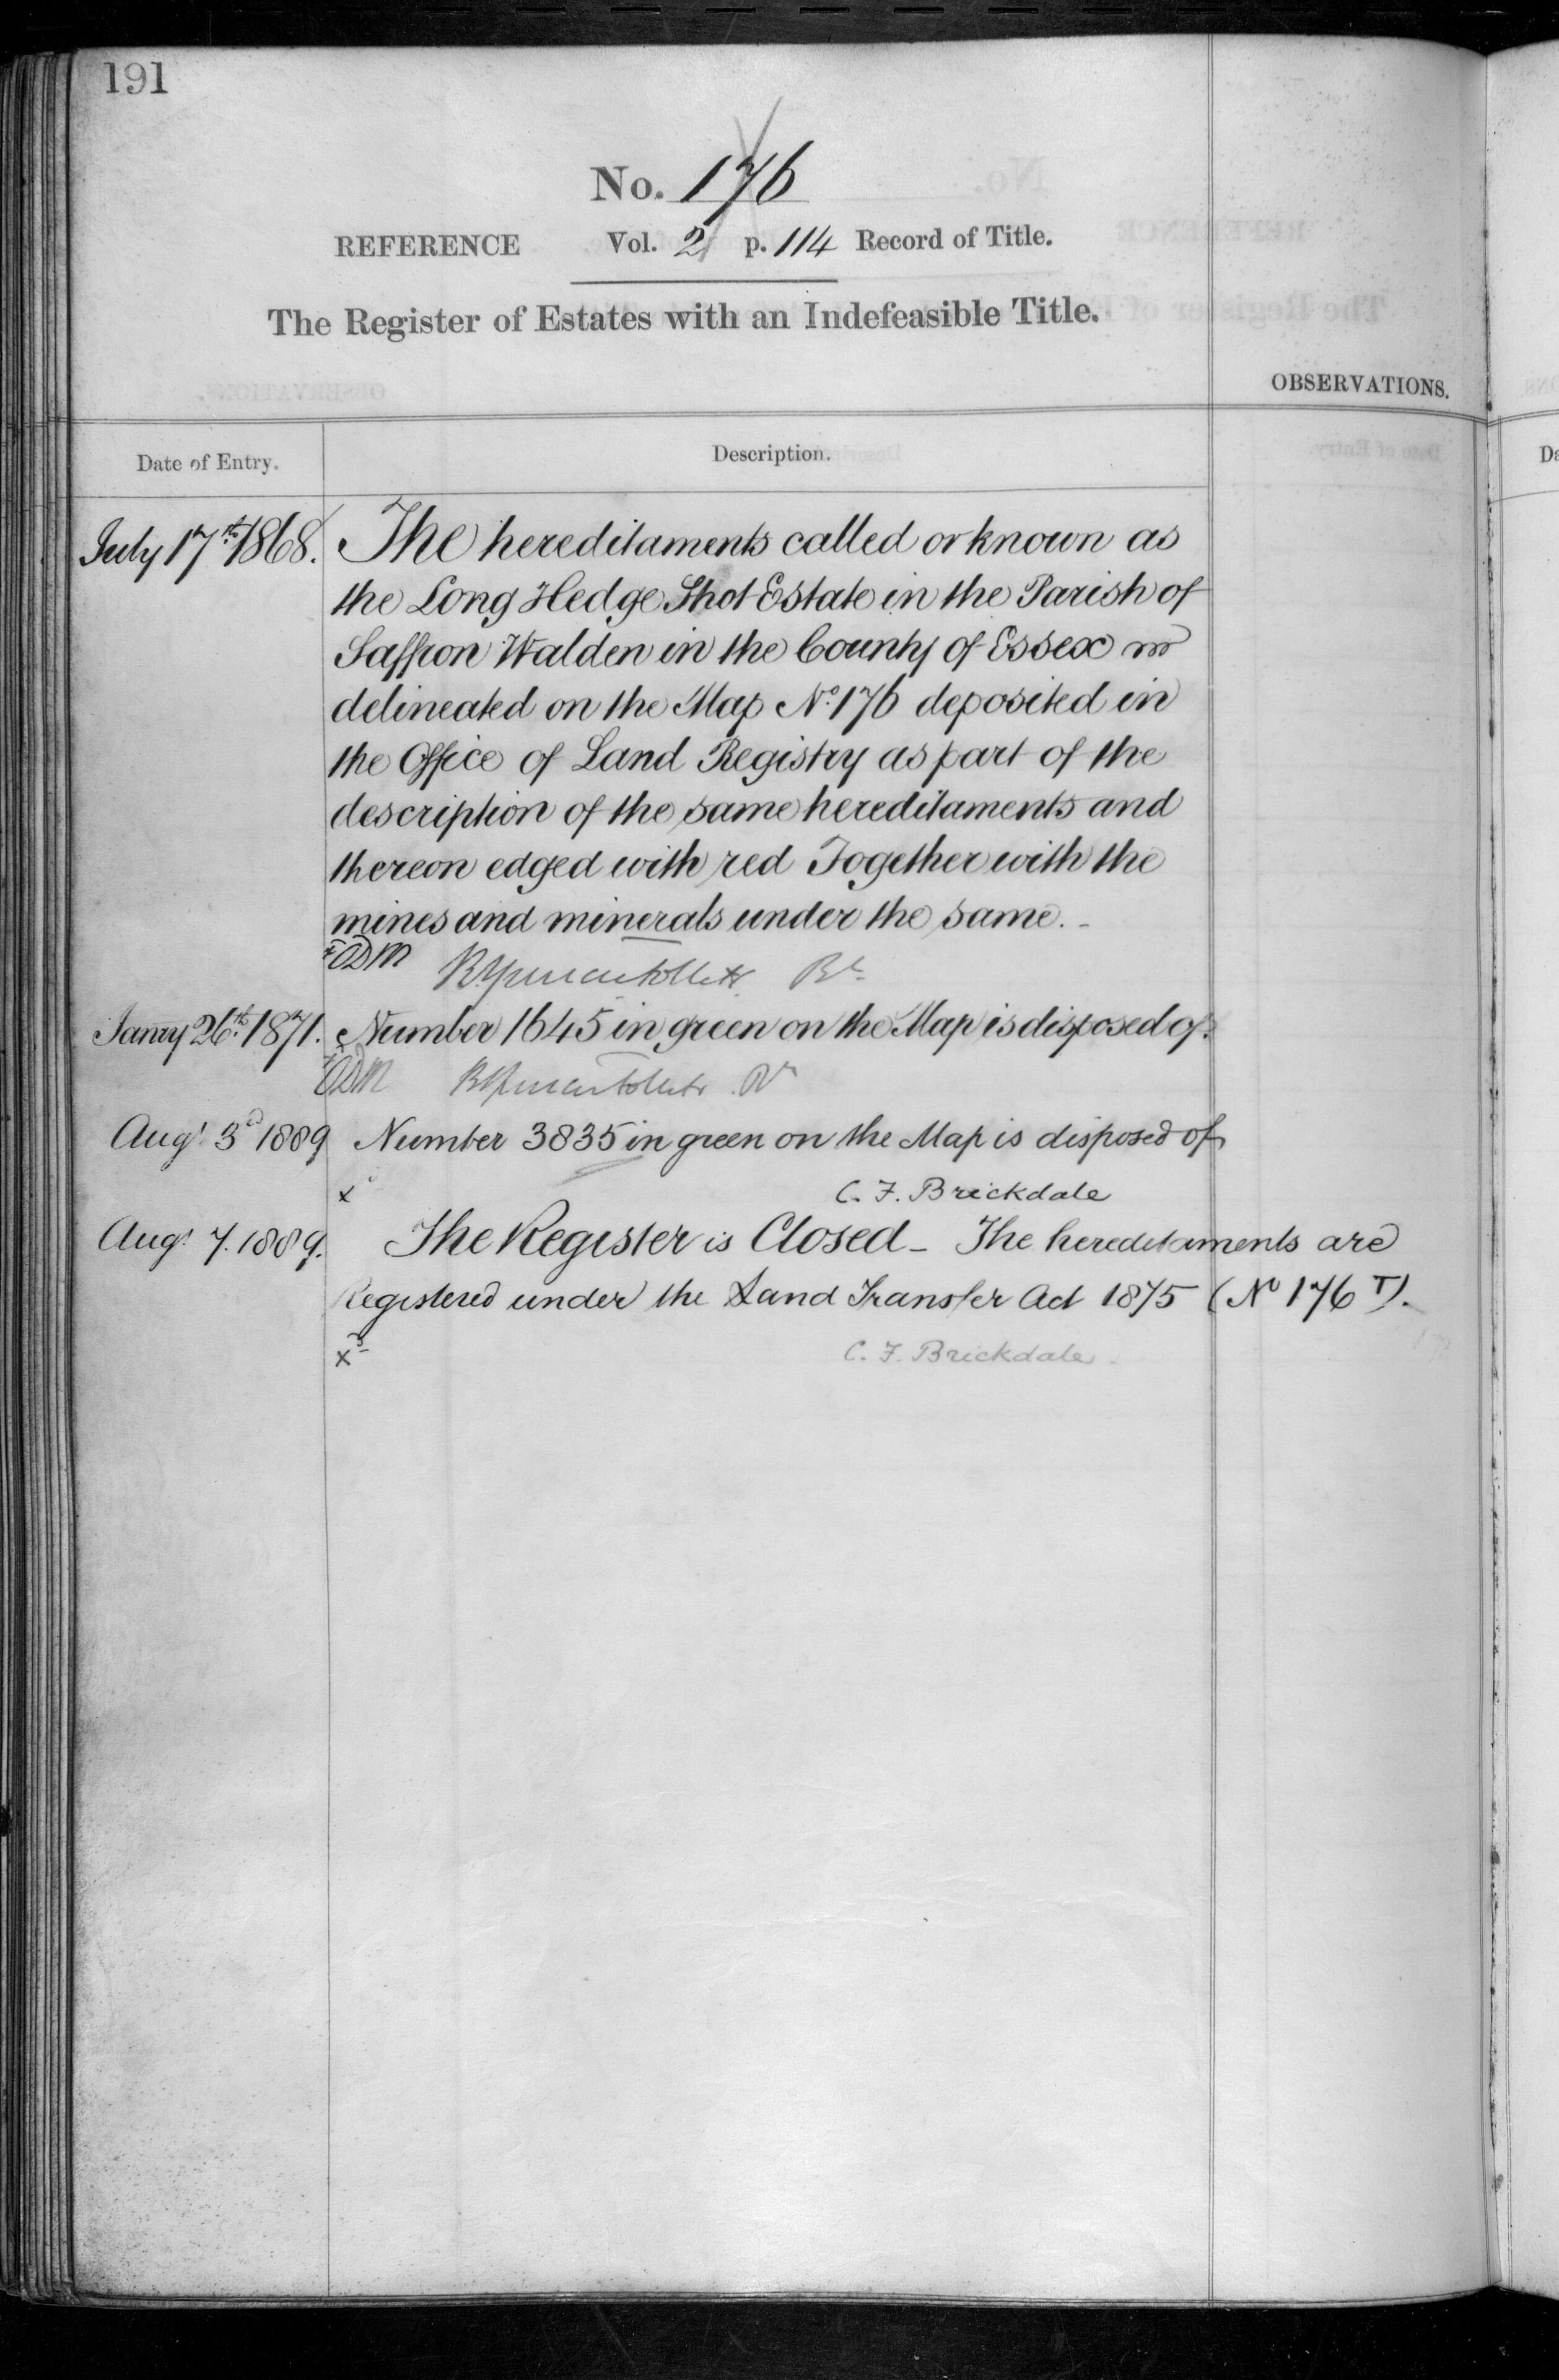 191
No. 176
REFERENCE Vol. 2 p. 114 Record of Title.
The Register of Estates with an Indefeasible Title.
OBSERVATIONS.
Date of Entry. Description.
July 17th 1868. The hereditaments called or known as
the Long Hedge Shot Estate in the Parish of
Saffron Walden in the County of Essex
delineated on the Map No. 176 deposited in
the Office of Land Registry as part of the
description of the same hereditaments and
thereon edged with red Together with the
mines and minerals under the same. -
Janry 26th 1871. Number 1645 in green on the Map is disposed of.
Augt 3d 1889 Number 3835 in green on the Map is disposed of
x C. F. Brickdale
Augt 7. 1889. The Register is Closed - The hereditaments are
Registered under the Land Transfer Act 1875 (No 176 T).
x C. F. Brickdale